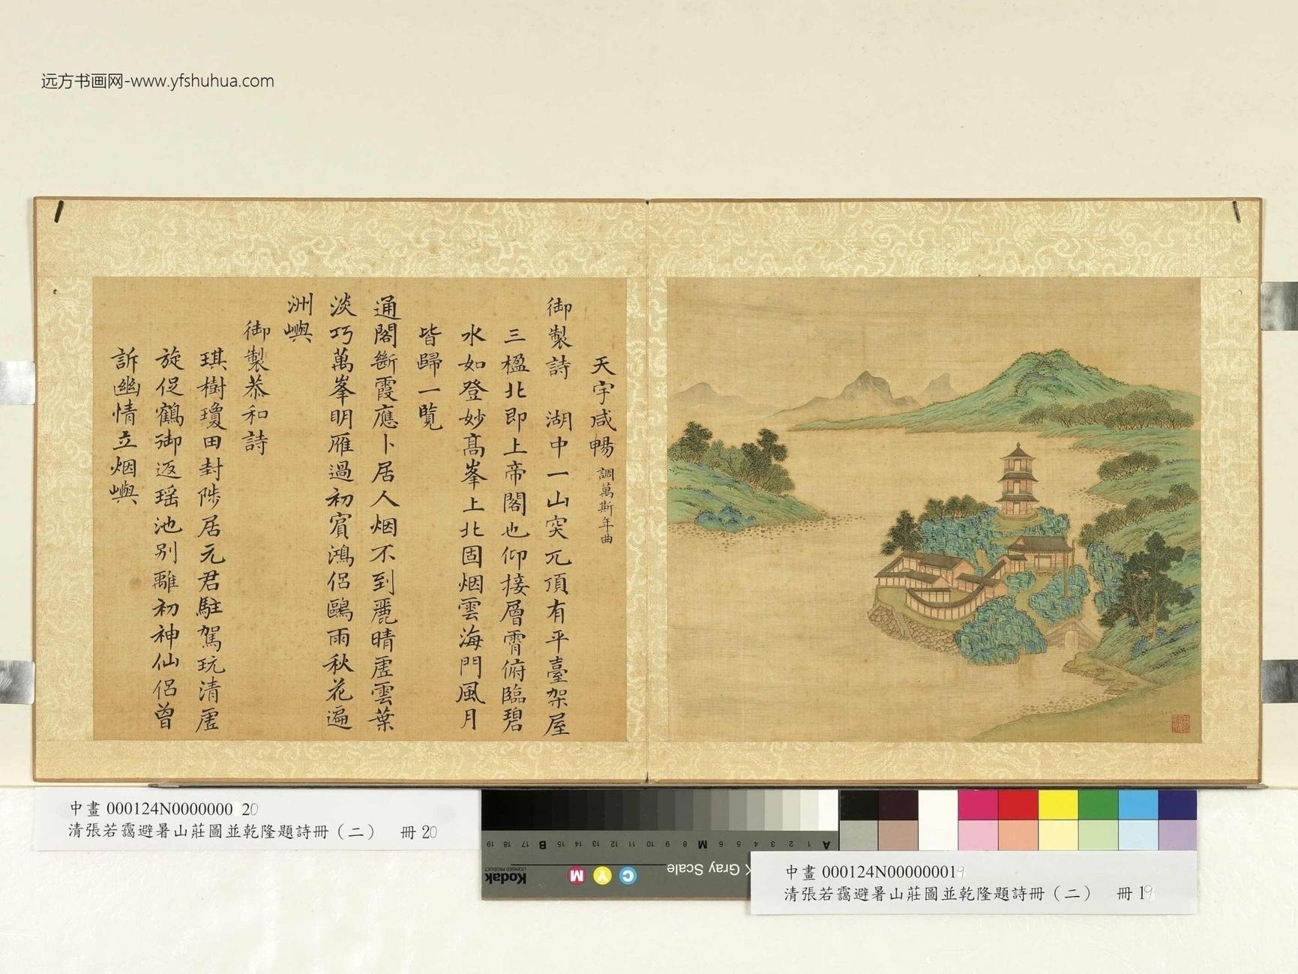 远方书画网-www.yfshuhua.com
天宇咸暢 調萬斯年曲
御製詩 湖中一山突兀頂有平臺架屋
三楹北即上帝閣也仰接層霄俯臨碧
水如登妙高峯上北固烟雲海門風月
皆歸一覽
通閣斷霞應卜居人烟不到麗晴虛雲葉
淡巧萬峯明雁過初賓鴻侶鷗雨秋花遍
洲嶼
御製恭和詩
琪樹瓊田封陟居元君駐駕玩清虛
旋促鶴御返瑤池別離初神仙侶曾
訴幽情立烟嶼
中畫 000124N0000000 20
清張若靄避暑山莊圖並乾隆題詩冊（二） 冊 20
19 18 17 B 16 15 14 13 12 11 10 9 8 7 M 6 5 4 3 2 1 A
Kodak
LICENSED PRODUCT
M Y C
Gray Scale
中畫 000124N0000000019
清張若靄避暑山莊圖並乾隆題詩冊（二） 冊 19